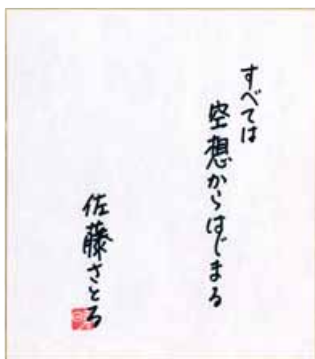 すべては
空想からはじまる
佐藤さとる